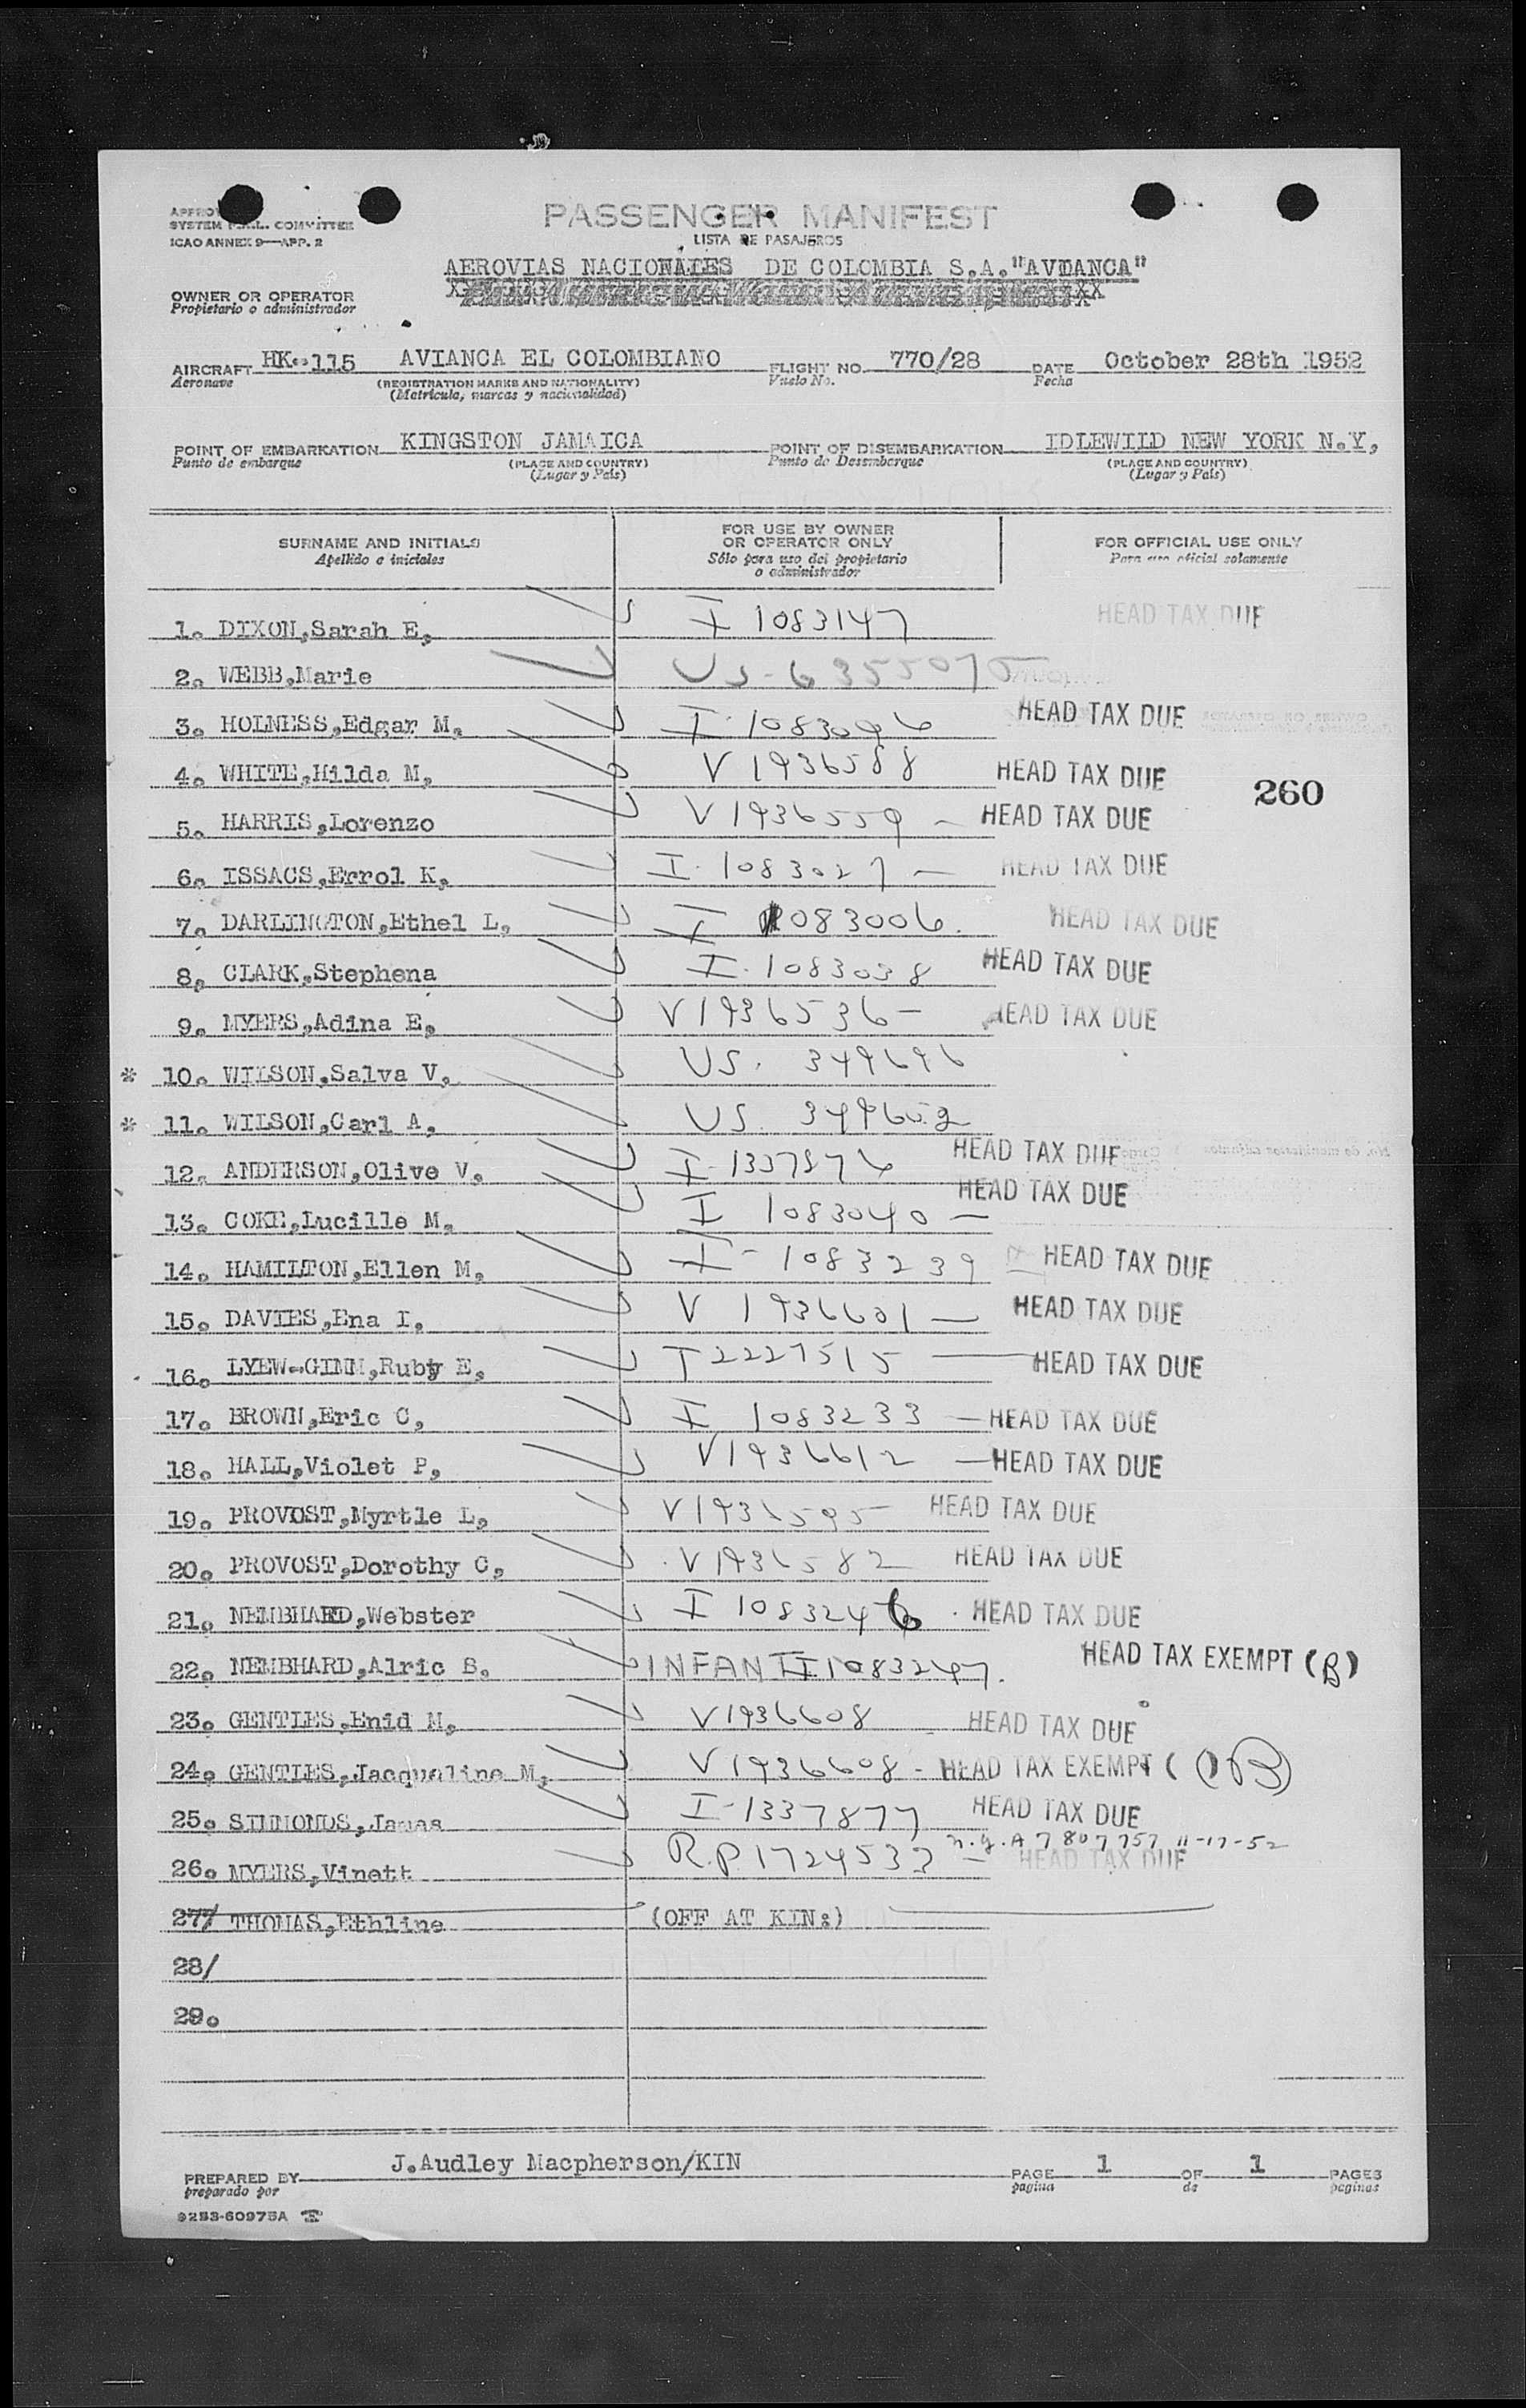 SYSTEM COMMITTEE
ICAO ANNEX 9—APP. 2
PASSENGER MANIFEST
LISTA DE PASAJEROS
AEROVIAS NACIONALES DE COLOMBIA S.A."AVIANCA"
OWNER OR OPERATOR
Propietario o administrador
AIRCRAFT HK-115 AVIANCA EL COLOMBIANO FLIGHT NO. 770/28 DATE October 28th 1952
Aeronave (REGISTRATION MARKS AND NATIONALITY) Vuelo No. Fecha
(Matricula, marcas y nacionalidad)
POINT OF EMBARKATION KINGSTON JAMAICA POINT OF DISEMBARKATION IDLEWILD NEW YORK N.Y,
Punto de embarque (PLACE AND COUNTRY) Punto de Desembarque (PLACE AND COUNTRY)
(Lugar y País) (Lugar y País)
SURNAME AND INITIALS FOR USE BY OWNER OR OPERATOR ONLY FOR OFFICIAL USE ONLY
Apellido e iniciales Sólo para uso del propietario o administrador Para uso oficial solamente
1. DIXON,Sarah E, I 1083147 HEAD TAX DUE
2. WEBB,Marie US-6355075
3. HOLNESS,Edgar M, I-1083096 HEAD TAX DUE
4. WHITE,Hilda M, V 1936588 HEAD TAX DUE
260
5. HARRIS,Lorenzo V 1936559 — HEAD TAX DUE
6. ISSACS,Errol K, I-1083027 — HEAD TAX DUE
7. DARLINGTON,Ethel L, I 1083006. HEAD TAX DUE
8, CLARK,Stephena I-1083038 HEAD TAX DUE
9. MYERS,Adina E, V1936536— HEAD TAX DUE
* 10. WILSON,Salva V, US. 349696
* 11. WILSON,Carl A, US. 349652
12. ANDERSON,Olive V, I-1337876 HEAD TAX DUE
13. COKE,Lucille M, I 1083040 — HEAD TAX DUE
14. HAMILTON,Ellen M, I-1083239 HEAD TAX DUE
15. DAVIES,Ena I, V 1936601 — HEAD TAX DUE
16. LYEW-GINM,Ruby E, T2227515 — HEAD TAX DUE
17. BROWN,Eric C, I 1083233 — HEAD TAX DUE
18. HALL,Violet P, V1936612 — HEAD TAX DUE
19. PROVOST,Myrtle L, V1936595 HEAD TAX DUE
20. PROVOST,Dorothy C, V1936582 HEAD TAX DUE
21. NEMBHARD,Webster I 1083246 HEAD TAX DUE
22. NEMBHARD,Alric S. INFANT I1083247. HEAD TAX EXEMPT (B)
23. GENTLES,Enid M, V1936608 HEAD TAX DUE
24. GENTLES,Jacqueline M, V1936608 - HEAD TAX EXEMPT ( ) (B)
25. SIMMONDS,James I-1337877 HEAD TAX DUE
n.y. A 7 807 757 11-17-52
26. MYERS,Vinett R.P.1724533 — HEAD TAX DUE
27/ THOMAS,Ethline (OFF AT KIN:)
28/
29.
PREPARED BY J.Audley Macpherson/KIN PAGE 1 OF 1 PAGES
preparado por pagina de paginas
9253-60975A